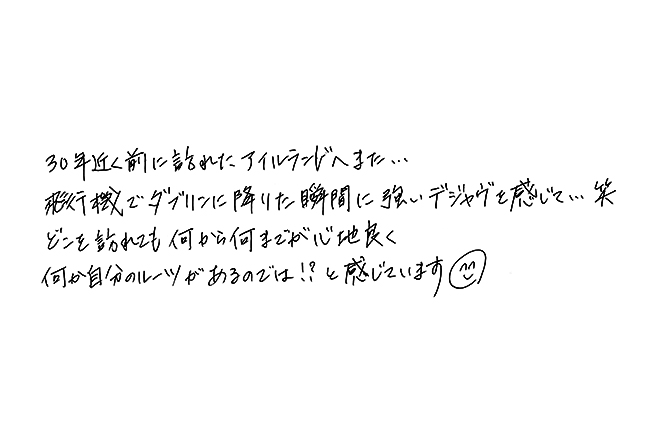 30年近く前に訪れた、アイルランドへまた…
飛行機でダブリンに降りた瞬間に強いデジャヴを感じて…笑
どこを訪れても何から何までが心地良く
何か自分のルーツがあるのでは!?と感じています